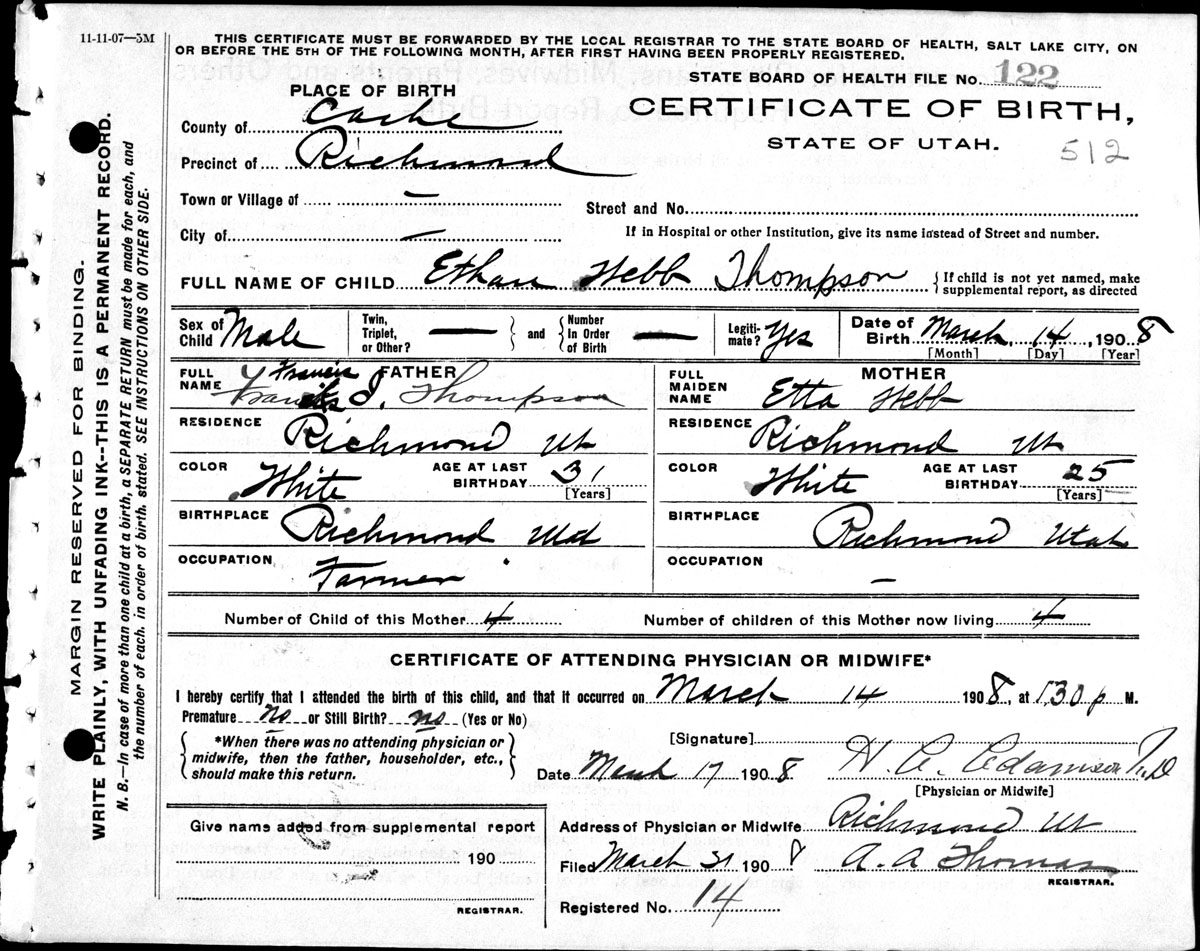 11-11-07—3M
THIS CERTIFICATE MUST BE FORWARDED BY THE LOCAL REGISTRAR TO THE STATE BOARD OF HEALTH, SALT LAKE CITY, ON
OR BEFORE THE 5TH OF THE FOLLOWING MONTH, AFTER FIRST HAVING BEEN PROPERLY REGISTERED.
STATE BOARD OF HEALTH FILE No. 122
PLACE OF BIRTH
CERTIFICATE OF BIRTH,
STATE OF UTAH.
512
County of Cache
Precinct of Richmond
Town or Village of —
Street and No.
City of —
If in Hospital or other Institution, give its name instead of Street and number.
FULL NAME OF CHILD Ethan Webb Thompson {If child is not yet named, make supplemental report, as directed
Sex of Child Male
Twin, Triplet, or Other? — } and { Number In Order of Birth —
Legiti-mate? Yes
Date of Birth March 14, 1908
[Month] [Day] [Year]
FATHER
FULL NAME Francis J. Thompson
Francis
RESIDENCE Richmond Ut
COLOR White AGE AT LAST BIRTHDAY 31 [Years]
BIRTHPLACE Richmond
OCCUPATION Farmer
MOTHER
FULL MAIDEN NAME Etta Webb
RESIDENCE Richmond Ut
COLOR White AGE AT LAST BIRTHDAY 25 [Years]
BIRTHPLACE Richmond Utah
OCCUPATION —
Number of Child of this Mother 4 Number of children of this Mother now living 4
CERTIFICATE OF ATTENDING PHYSICIAN OR MIDWIFE*
I hereby certify that I attended the birth of this child, and that it occurred on March 14 1908, at 130 p M.
Premature no or Still Birth? no (Yes or No)
{*When there was no attending physician or midwife, then the father, householder, etc., should make this return.}
[Signature] H. C. Adamson M.D
[Physician or Midwife]
Date March 17 1908
Give name added from supplemental report
190
REGISTRAR.
Address of Physician or Midwife Richmond Ut
Filed March 31 1908 A. A Thomas
REGISTRAR.
Registered No. 14
MARGIN RESERVED FOR BINDING.
WRITE PLAINLY, WITH UNFADING INK--THIS IS A PERMANENT RECORD.
N. B.—In case of more than one child at a birth, a SEPARATE RETURN must be made for each, and
the number of each, in order of birth, stated. SEE INSTRUCTIONS ON OTHER SIDE.